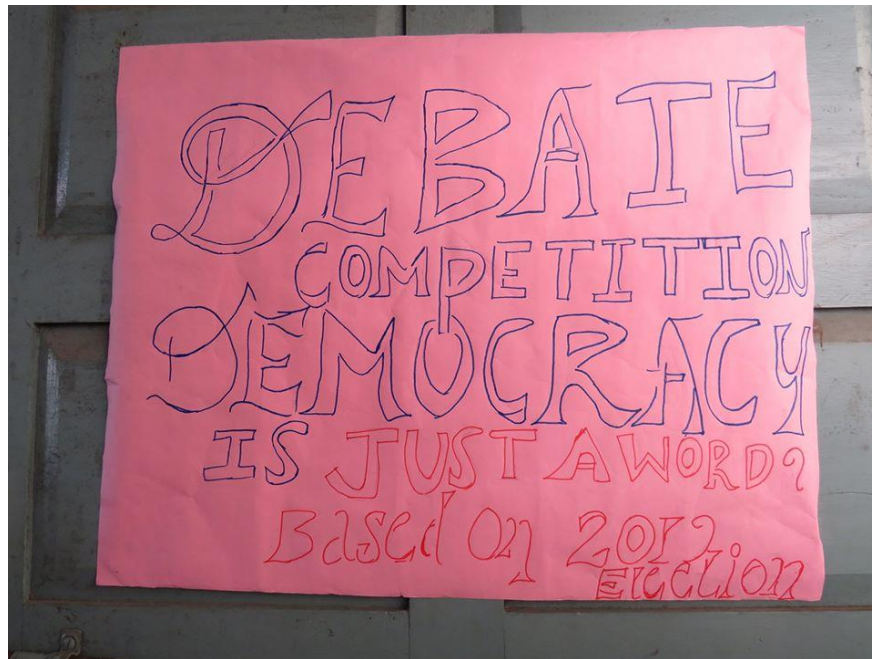 DEBATE
COMPETITION
DEMOCRACY
IS JUST A WORD?
Based On
Election